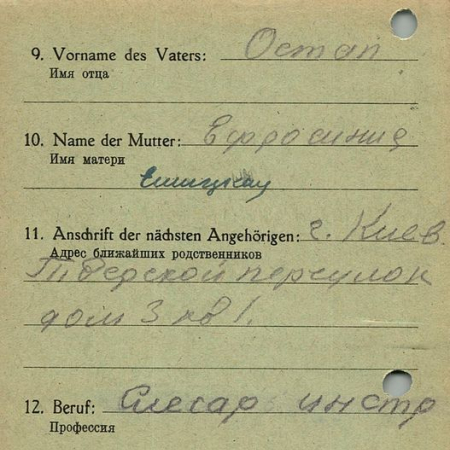 9. Vorname des Vaters: Остап
Имя отца
10. Name der Mutter: Ефросиния
Имя матери
11. Anschrift der nächsten Angehörigen: г. Киев.
Адрес ближайших родственников
Тверской переулок
дом 3 кв 1.
12. Beruf: Слесар инстр
Профессия